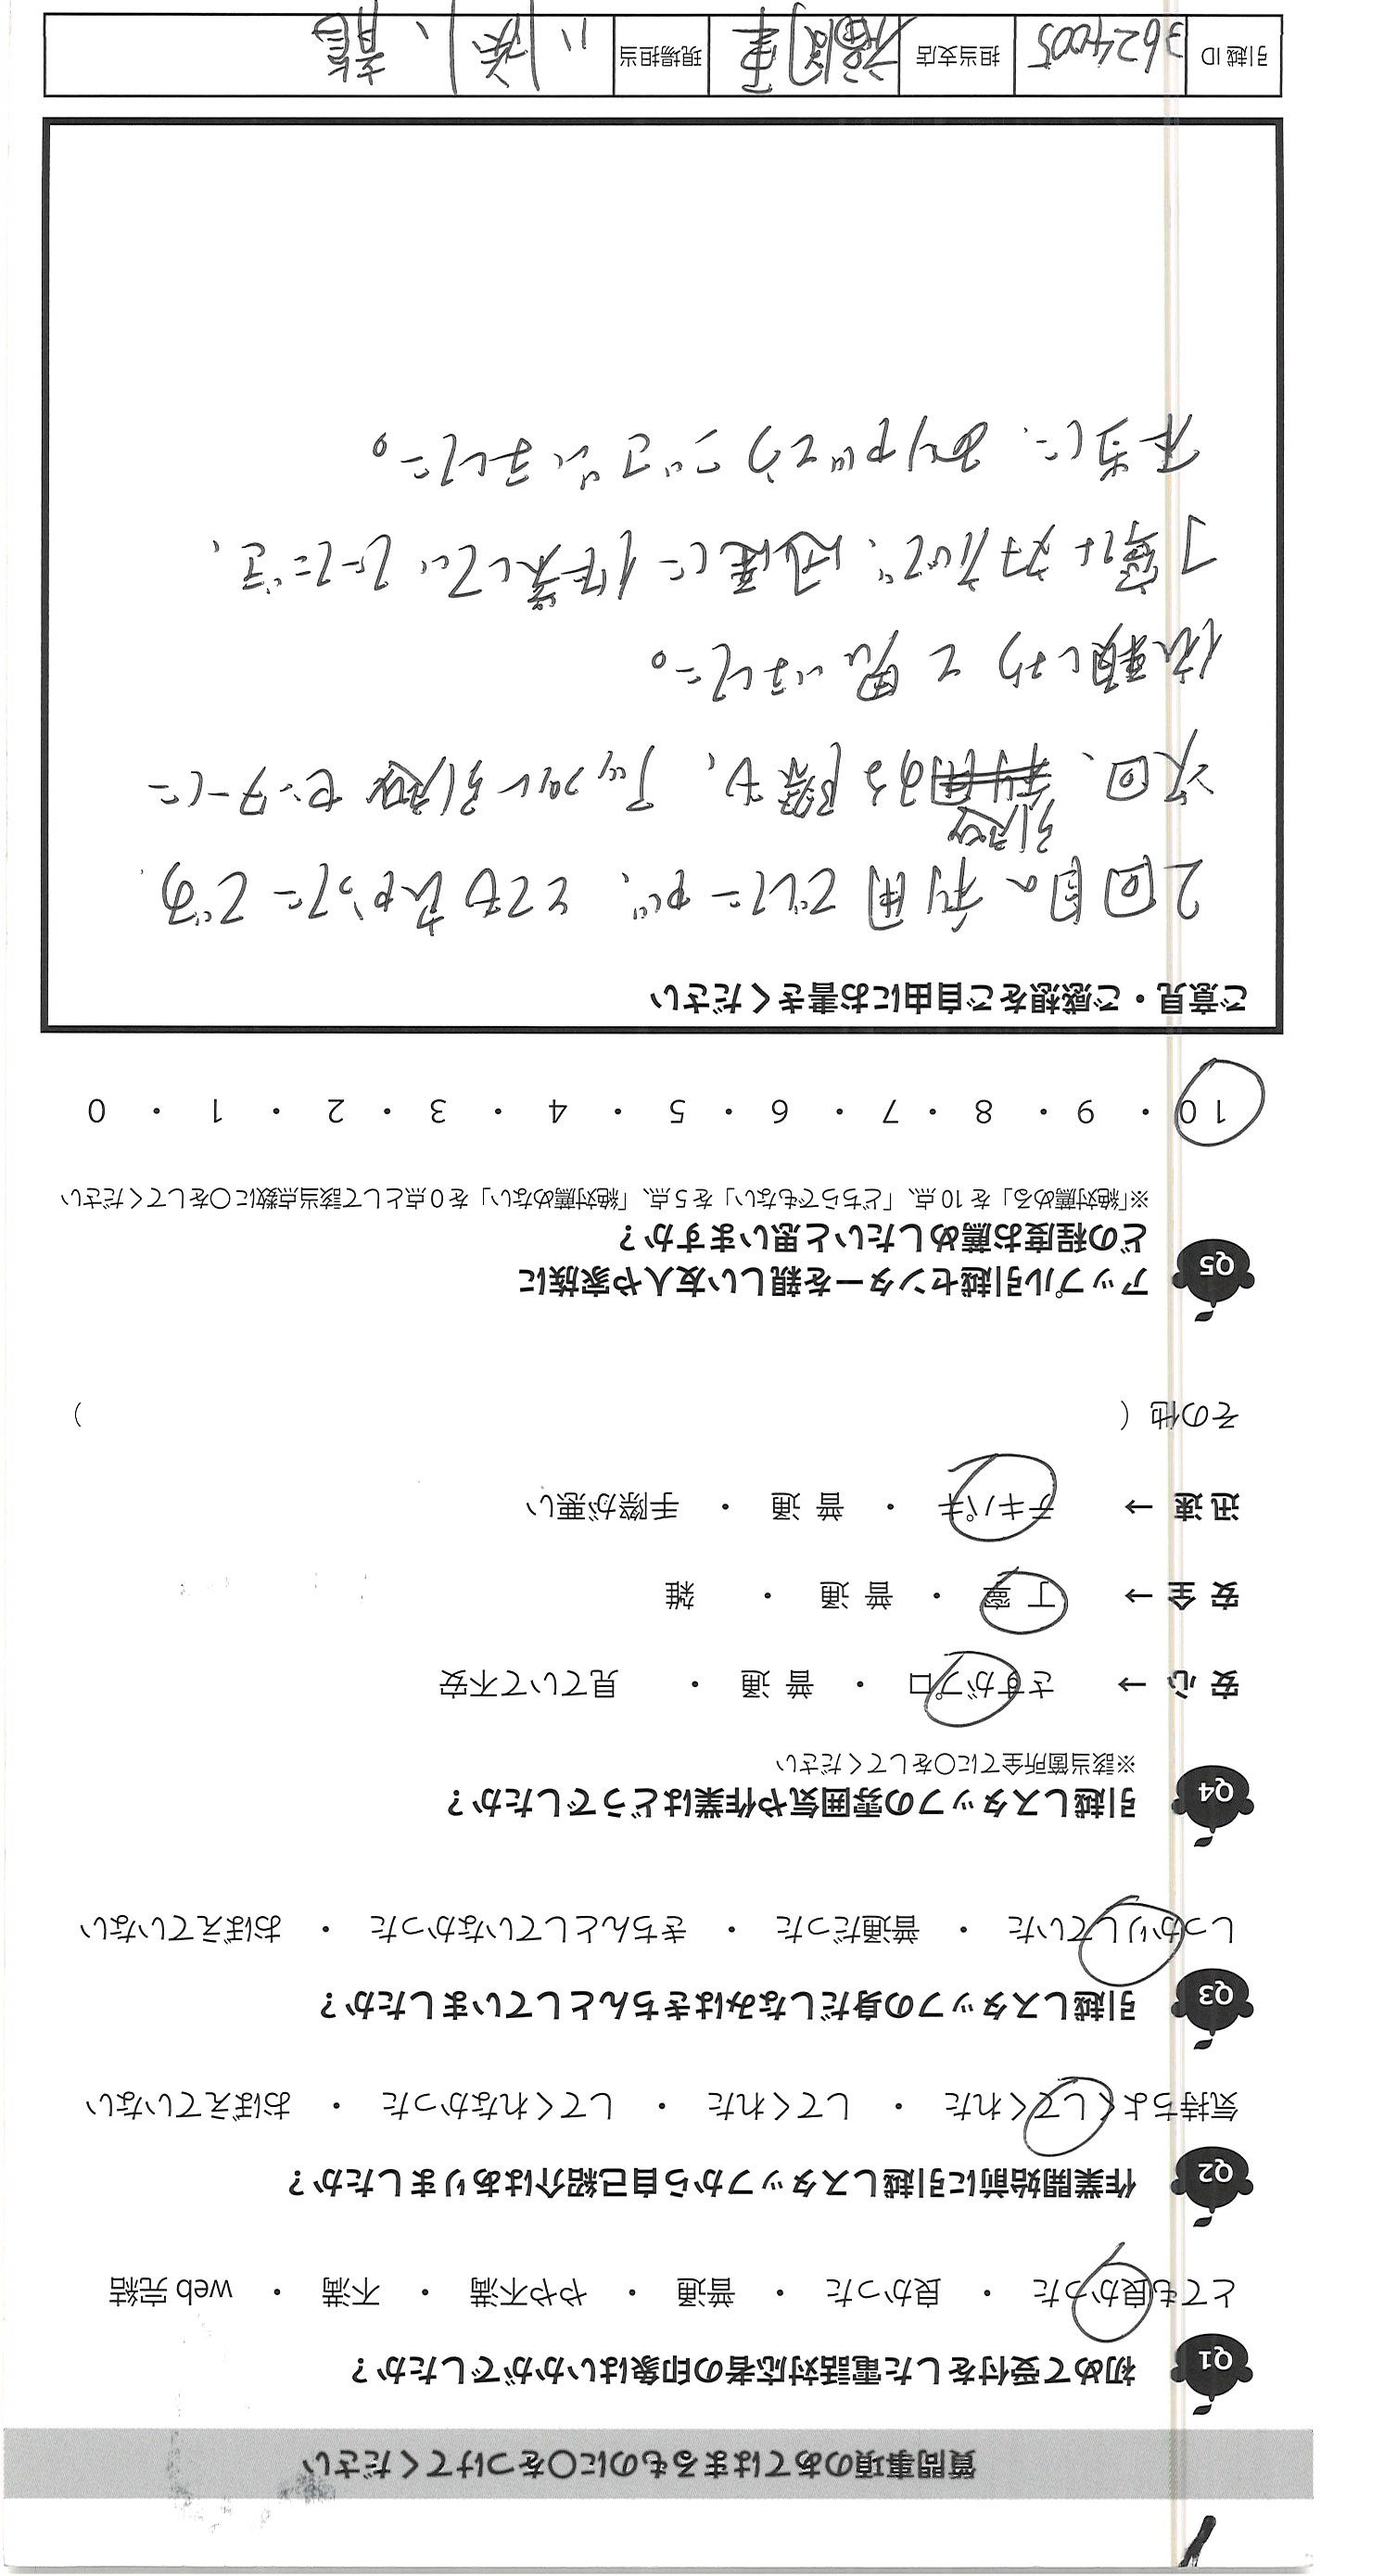 質問事項のあてはまるものに○をつけてください
Q1 初めて受付をした電話対応者の印象はいかがでしたか?
とても良かった ・ 良かった ・ 普通 ・ やや不満 ・ 不満 ・ web 完結
Q2 作業開始前に引越しスタッフから自己紹介はありましたか?
気持ちよくしてくれた ・ してくれた ・ してくれなかった ・ おぼえていない
Q3 引越しスタッフの身だしなみはきちんとしていましたか?
しっかりしていた ・ 普通だった ・ きちんとしていなかった ・ おぼえていない
Q4 引越しスタッフの雰囲気や作業はどうでしたか?
※該当箇所全てに○をしてください
安心→ さすがプロ ・ 普通 ・ 見ていて不安
安全→ 丁寧 ・ 普通 ・ 雑
迅速→ テキパキ ・ 普通 ・ 手際が悪い
その他 ( )
Q5 アップル引越センターを親しい友人や家族に
どの程度お薦めしたいと思いますか?
※「絶対薦める」を 10 点、「どちらでもない」を 5 点、「絶対薦めない」を 0 点として該当点数に○をしてください
10 ・ 9 ・ 8 ・ 7 ・ 6 ・ 5 ・ 4 ・ 3 ・ 2 ・ 1 ・ 0
ご意見・ご感想をご自由にお書きください
2回目の利用でしたが、とても良かったです
引越
次回、利用する際も、アップル引越センターに
依頼しようと思いました。
丁寧な対応で、迅速に作業していただき、
本当に、ありがとうございました。
引越 ID 3624005 担当支店 福岡東 現場担当